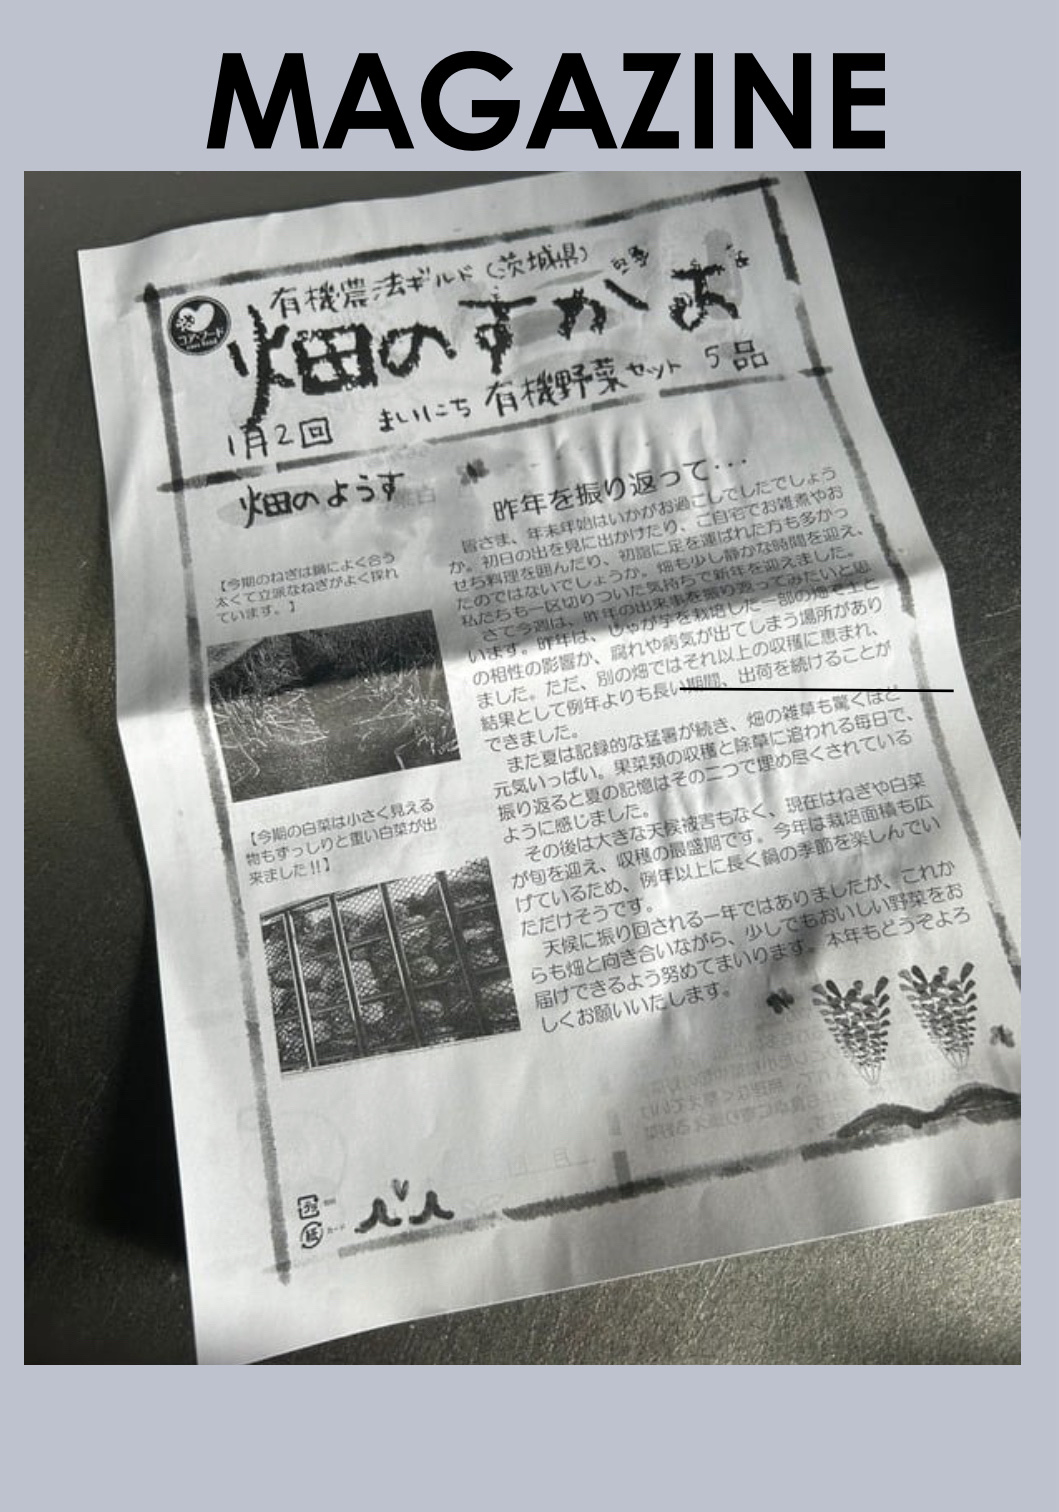 MAGAZINE
有機農法ギルド(茨城県)
コア・フード
畑のすがお
1月2回 まいにち 有機野菜セット 5品
畑のようす
【今期のねぎは鍋によく合う
太くて立派なねぎがよく採れ
ています。】
【今期の白菜は小さく見える
物もずっしりと重い白菜が出
来ました!!】
昨年を振り返って・・・
皆さま、年末年始はいかがお過ごしでしたでしょう
か。初日の出を見に出かけたり、ご自宅でお雑煮やお
せち料理を囲んだり、初詣に足を運ばれた方も多かっ
たのではないでしょうか。畑も少し静かな時間を迎え、
私たちも一区切りついた気持ちで新年を迎えました。
さて今週は、昨年の出来事を振り返ってみたいと思
います。昨年は、じゃが芋を栽培した一部の畑で土と
の相性の影響か、腐れや病気が出てしまう場所があり
ました。ただ、別の畑ではそれ以上の収穫に恵まれ、
結果として例年よりも長い期間、出荷を続けることが
できました。
また夏は記録的な猛暑が続き、畑の雑草も驚くほど
元気いっぱい。果菜類の収穫と除草に追われる毎日で、
振り返ると夏の記憶はその二つで埋め尽くされている
ように感じました。
その後は大きな天候被害もなく、現在はねぎや白菜
が旬を迎え、収穫の最盛期です。今年は栽培面積も広
げているため、例年以上に長く鍋の季節を楽しんでい
ただけそうです。
天候に振り回される一年ではありましたが、これか
らも畑と向き合いながら、少しでもおいしい野菜をお
届けできるよう努めてまいります。本年もどうぞよろ
しくお願いいたします。
紙
カード